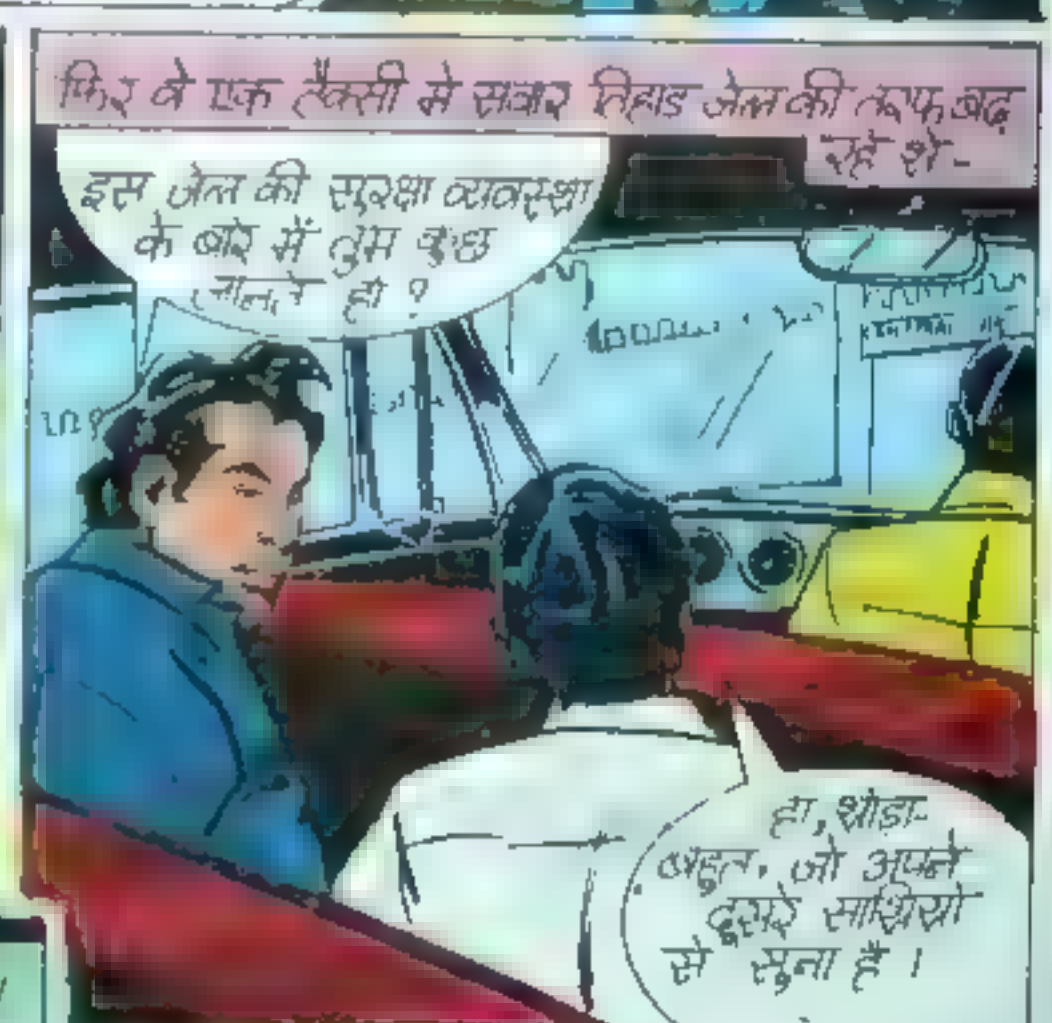 फिर वे एक टैक्सी मे सवार तिहाड जेल की तरफ बढ़
रहे थे-
इस जेल की सुरक्षा व्यवस्था
के बारे में तुम कुछ
जानते हो ?
हा, थोड़ा-
बहुत. जो अपने
दूसरे साथियो
से सुना है ।